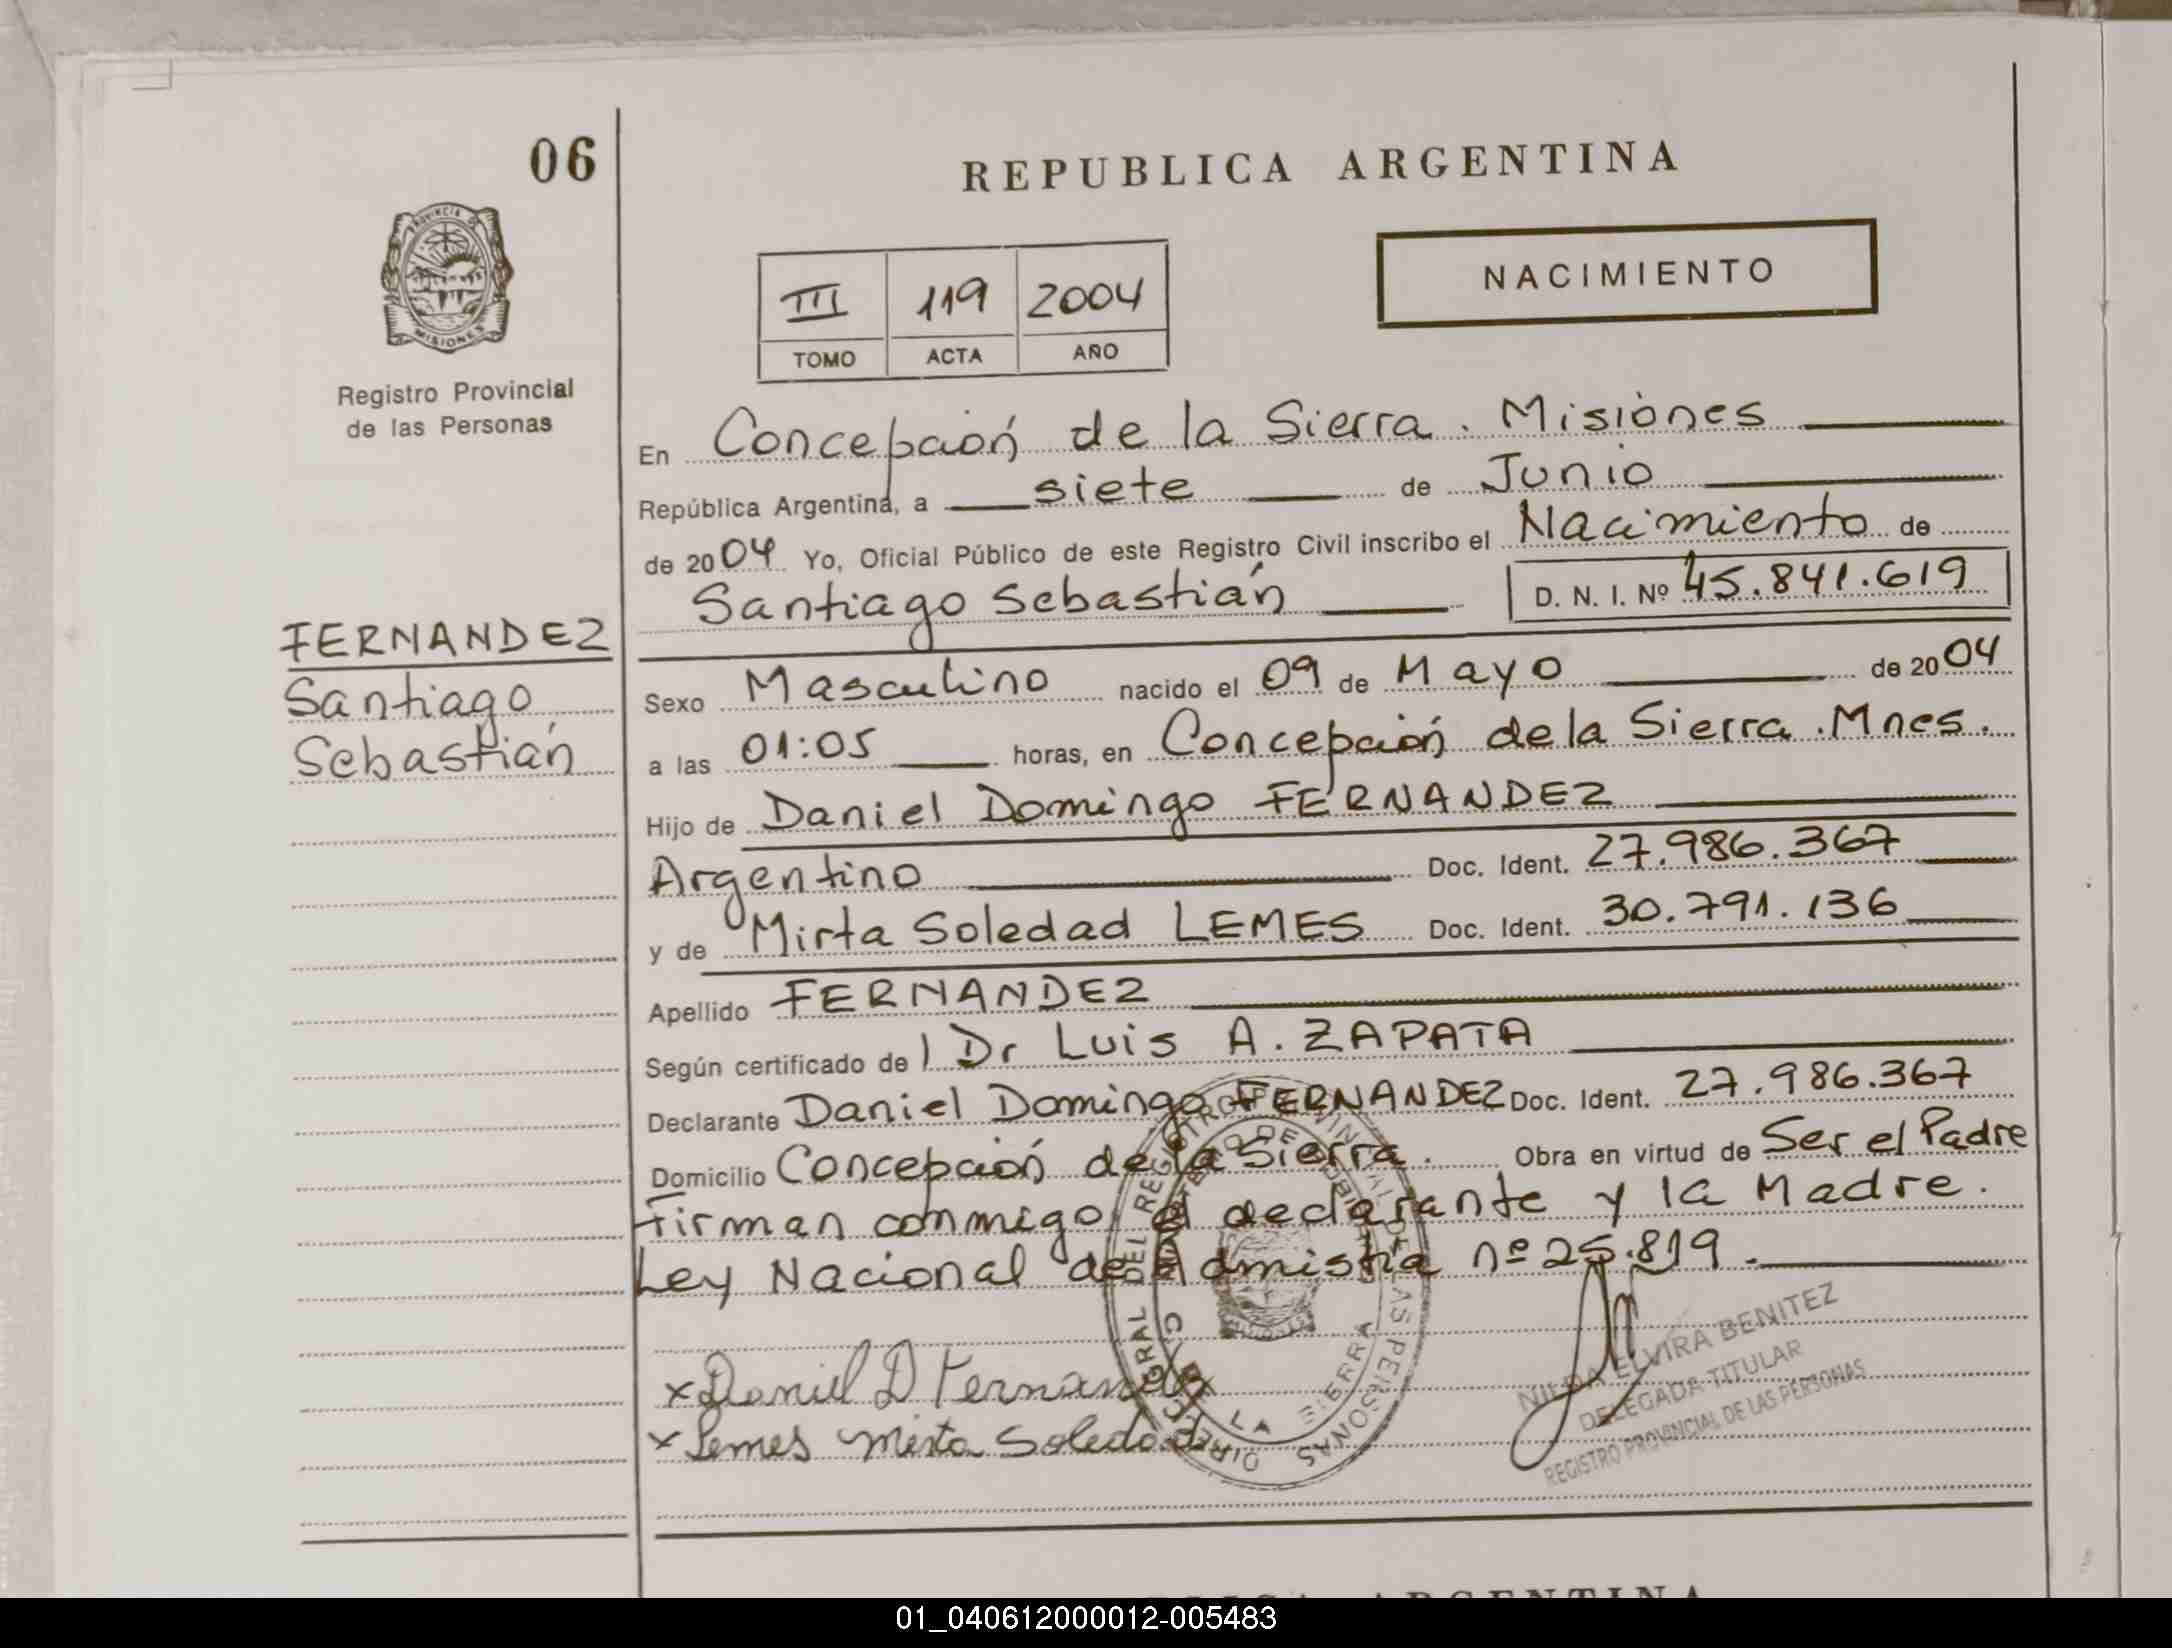 06
REPUBLICA ARGENTINA
PROVINCIA DE
MISIONES
NACIMIENTO
III 119 2004
TOMO ACTA AÑO
Registro Provincial
de las Personas
En Concepción de la Sierra. Misiones
República Argentina, a siete de Junio
de 2004 Yo, Oficial Público de este Registro Civil inscribo el Nacimiento de
Santiago Sebastián D. N. I. Nº 45.841.619
FERNANDEZ
Santiago
Sebastián
Sexo Masculino nacido el 09 de Mayo de 2004
a las 01:05 horas, en Concepción de la Sierra. Mnes.
Hijo de Daniel Domingo FERNANDEZ
Argentino Doc. Ident. 27.986.367
y de Mirta Soledad LEMES Doc. Ident. 30.791.136
Apellido FERNANDEZ
Según certificado de l Dr Luis A. ZAPATA
Declarante Daniel Domingo FERNANDEZ Doc. Ident. 27.986.367
Domicilio Concepción de la Sierra. Obra en virtud de Ser el Padre
Firman conmigo el declarante y la Madre.
Ley Nacional de Admistia nº 25.819.
x Daniel D Fernandez
x Lemes Mirta Soledad
DIRECC. GRAL DEL REGISTRO PROVINCIAL DE LAS PERSONAS
LA SIERRA
NILDA ELVIRA BENITEZ
DELEGADA TITULAR
REGISTRO PROVINCIAL DE LAS PERSONAS
01_040612000012-005483